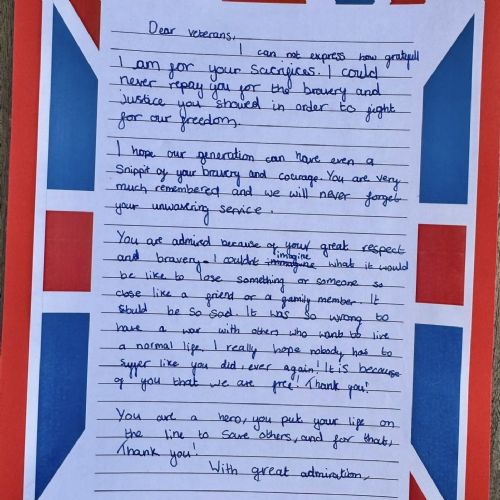 Dear veterans,
I can not express how gratefull
I am for your sacrifices. I could
never repay you for the bravery and
justice you showed in order to fight
for our freedom.
I hope our generation can have even a
snippit of your bravery and courage. You are very
much remembered and we will never forget
your unwavering service.
You are admired because of your great respect
and bravery. I couldnt imagine what it would
be like to lose something or someone so
close like a friend or a family member. It
should be so sad. It was so wrong to
have a war with others who want to live
a normal life. I really hope nobody has to
suffer like you did, ever again! It is because
of you that we are free! Thank you!
You are a hero, you put your life on
the line to save others, and for that,
Thank you!
With great admiration,